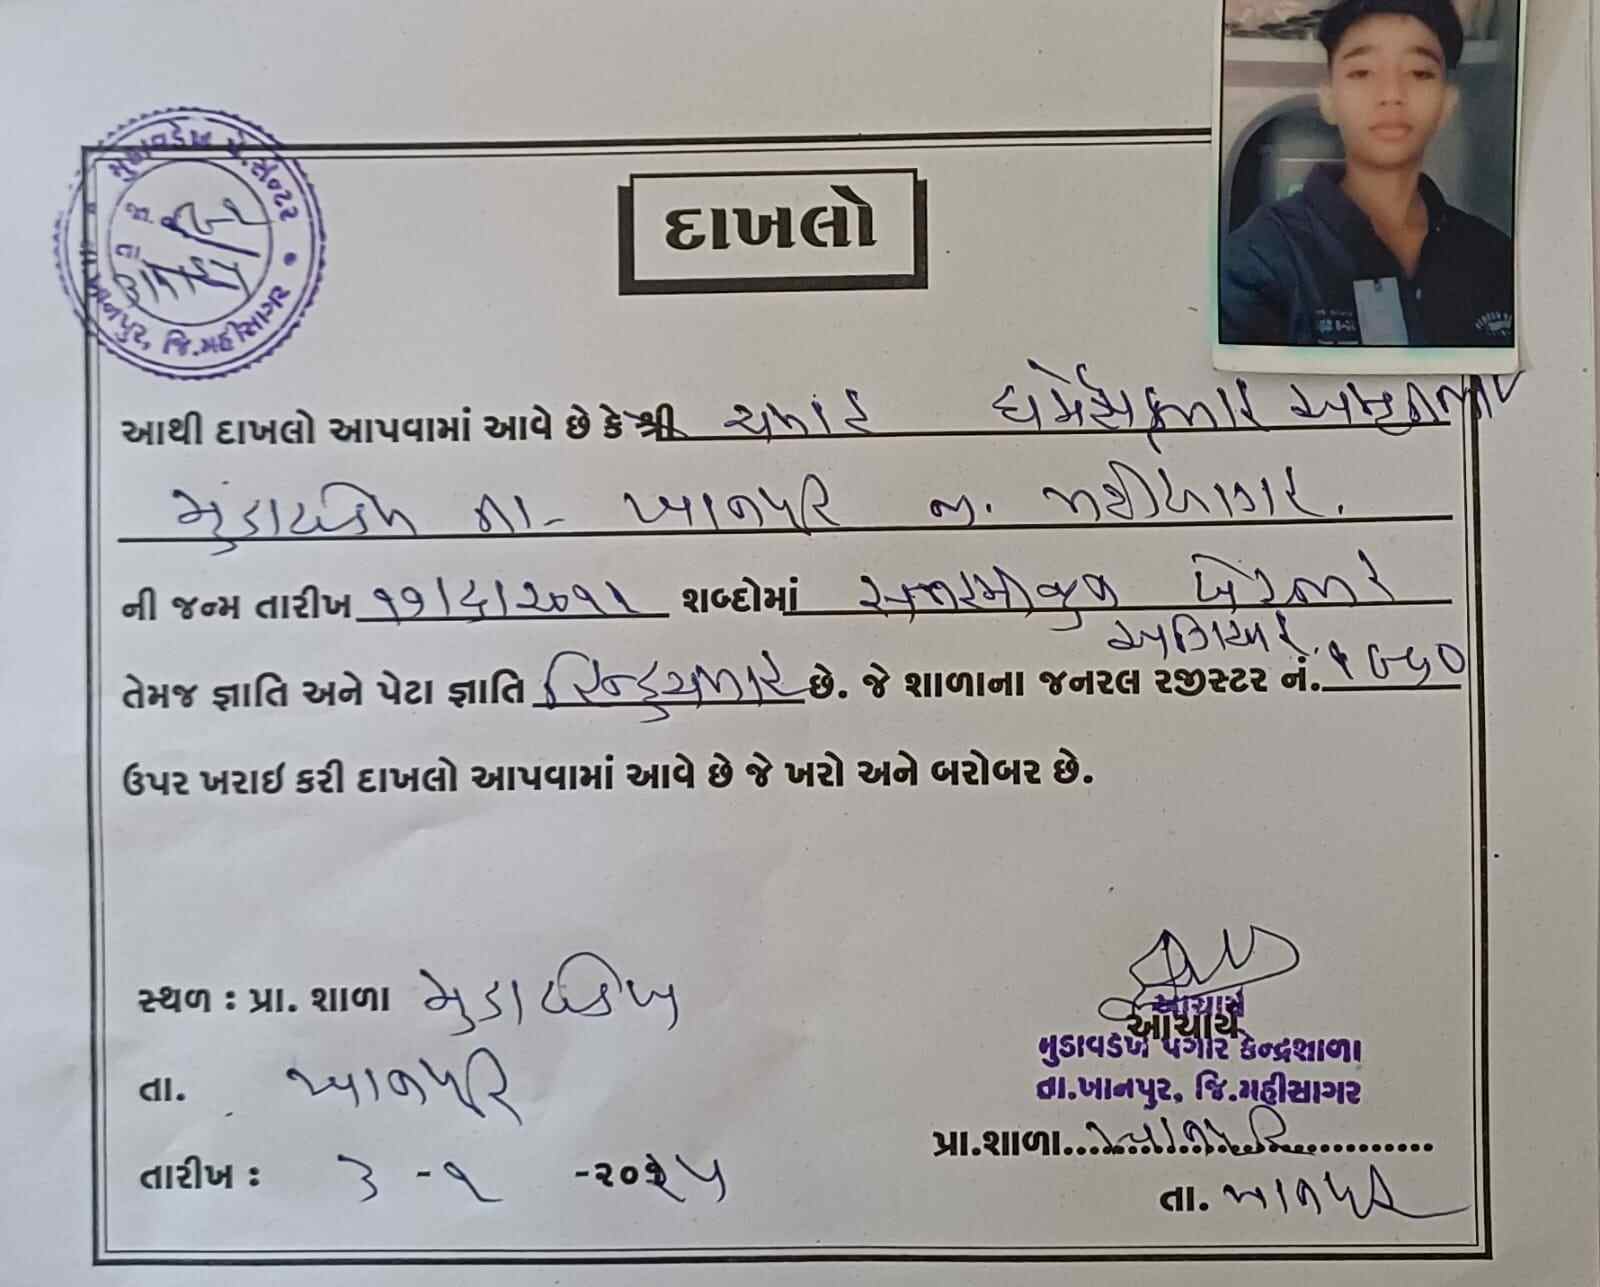 મુડાવડેખ પે.સેન્ટર
જા.
તા.
તા.ખાનપુર, જિ.મહીસાગર
દાખલો
આથી દાખલો આપવામાં આવે છે કે શ્રી ચમાર ધર્મેશકુમાર
મુંડાવડેખ તા- ખાનપુર જી. મહીસાગર.
ની જન્મ તારીખ ૧૭/૬/૨૦૧૧ શબ્દોમાં સત્તરમી જુન બે હજાર
અગિયાર.
તેમજ જ્ઞાતિ અને પેટા જ્ઞાતિ હિન્દુ ચમાર છે. જે શાળાના જનરલ રજીસ્ટર નં. ૧૭૫૦
ઉપર ખરાઈ કરી દાખલો આપવામાં આવે છે જે ખરો અને બરોબર છે.
સ્થળ : પ્રા. શાળા મુડાવડેખ
તા. ખાનપુર
તારીખ : ૩ -૧ -૨૦૨૫
આચાર્ય
આચાર્ય
મુડાવડેખ પગાર કેન્દ્રશાળા
તા.ખાનપુર, જિ.મહીસાગર
પ્રા.શાળા
તા. ખાનપુર